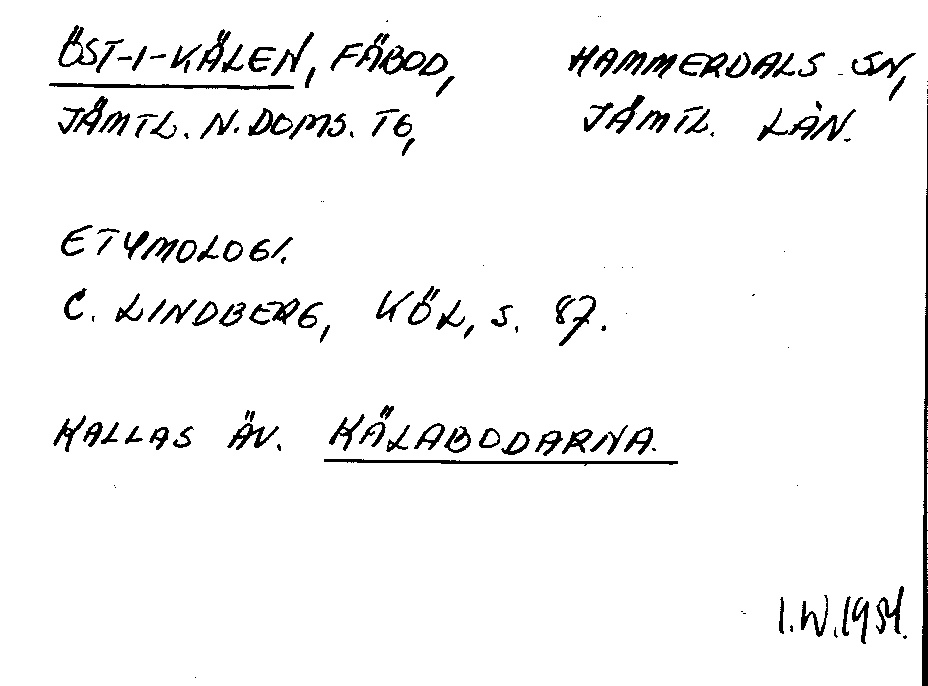 ÖST-I-KÄLEN, FÄBOD, HAMMERDALS SN,
JÄMTL. N. DOMS. TG, JÄMTL. LÄN.
ETYMOLOGI.
C. LINDBERG, KÖL, S. 87.
KALLAS ÄV. KÄLABODARNA.
I.W. 1954.